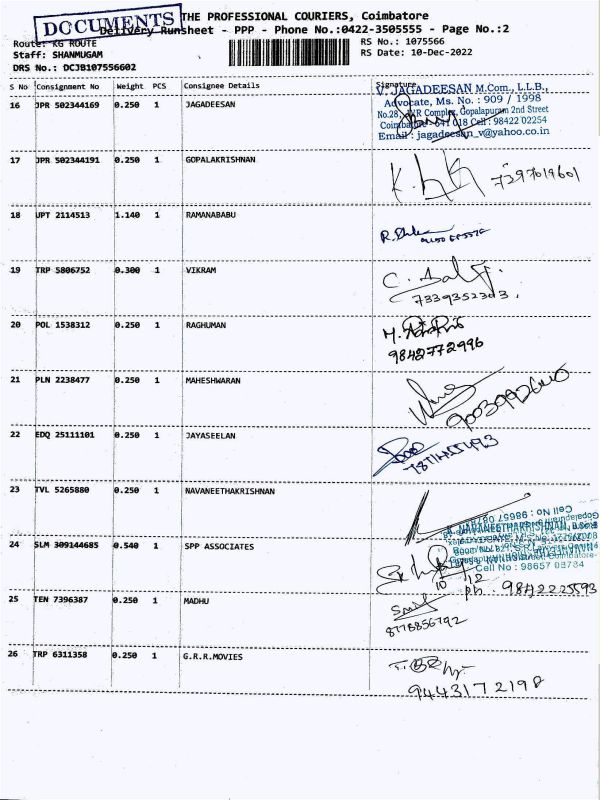 DOCUMENTS
THE PROFESSIONAL COURIERS, Coimbatore
Delivery Runsheet - PPP - Phone No.:0422-3505555 - Page No.:2
Route: KG ROUTE
RS No.: 1075566
Staff: SHANMUGAM
RS Date: 10-Dec-2022
DRS No.: DCJB107556602
S No Consignment No Weight PCS Consignee Details Signature
16 JPR 502344169 0.250 1 JAGADEESAN
V. JAGADEESAN M.Com., L.L.B.,
Advocate, Ms. No. : 909 / 1998
Complex, Gopalapuram 2nd Street
Cell : 98422 02254
Email : jagadeesan_v@yahoo.co.in
17 JPR 502344191 0.250 1 GOPALAKRISHNAN
7397019601
18 UPT 2114513 1.140 1 RAMANABABU
19 TRP 5806752 0.300 1 VIKRAM
7339352303
20 POL 1538312 0.250 1 RAGHUMAN
9842772996
21 PLN 2238477 0.250 1 MAHESHWARAN
22 EDQ 25111101 0.250 1 JAYASEELAN
23 TVL 5265880 0.250 1 NAVANEETHAKRISHNAN
24 SLM 309144685 0.540 1 SPP ASSOCIATES
Cell No : 98657 08734
10 12
Ph. 9842225593
25 TEN 7396387 0.250 1 MADHU
8778856792
26 TRP 6311358 0.250 1 G.R.R.MOVIES
9443172198